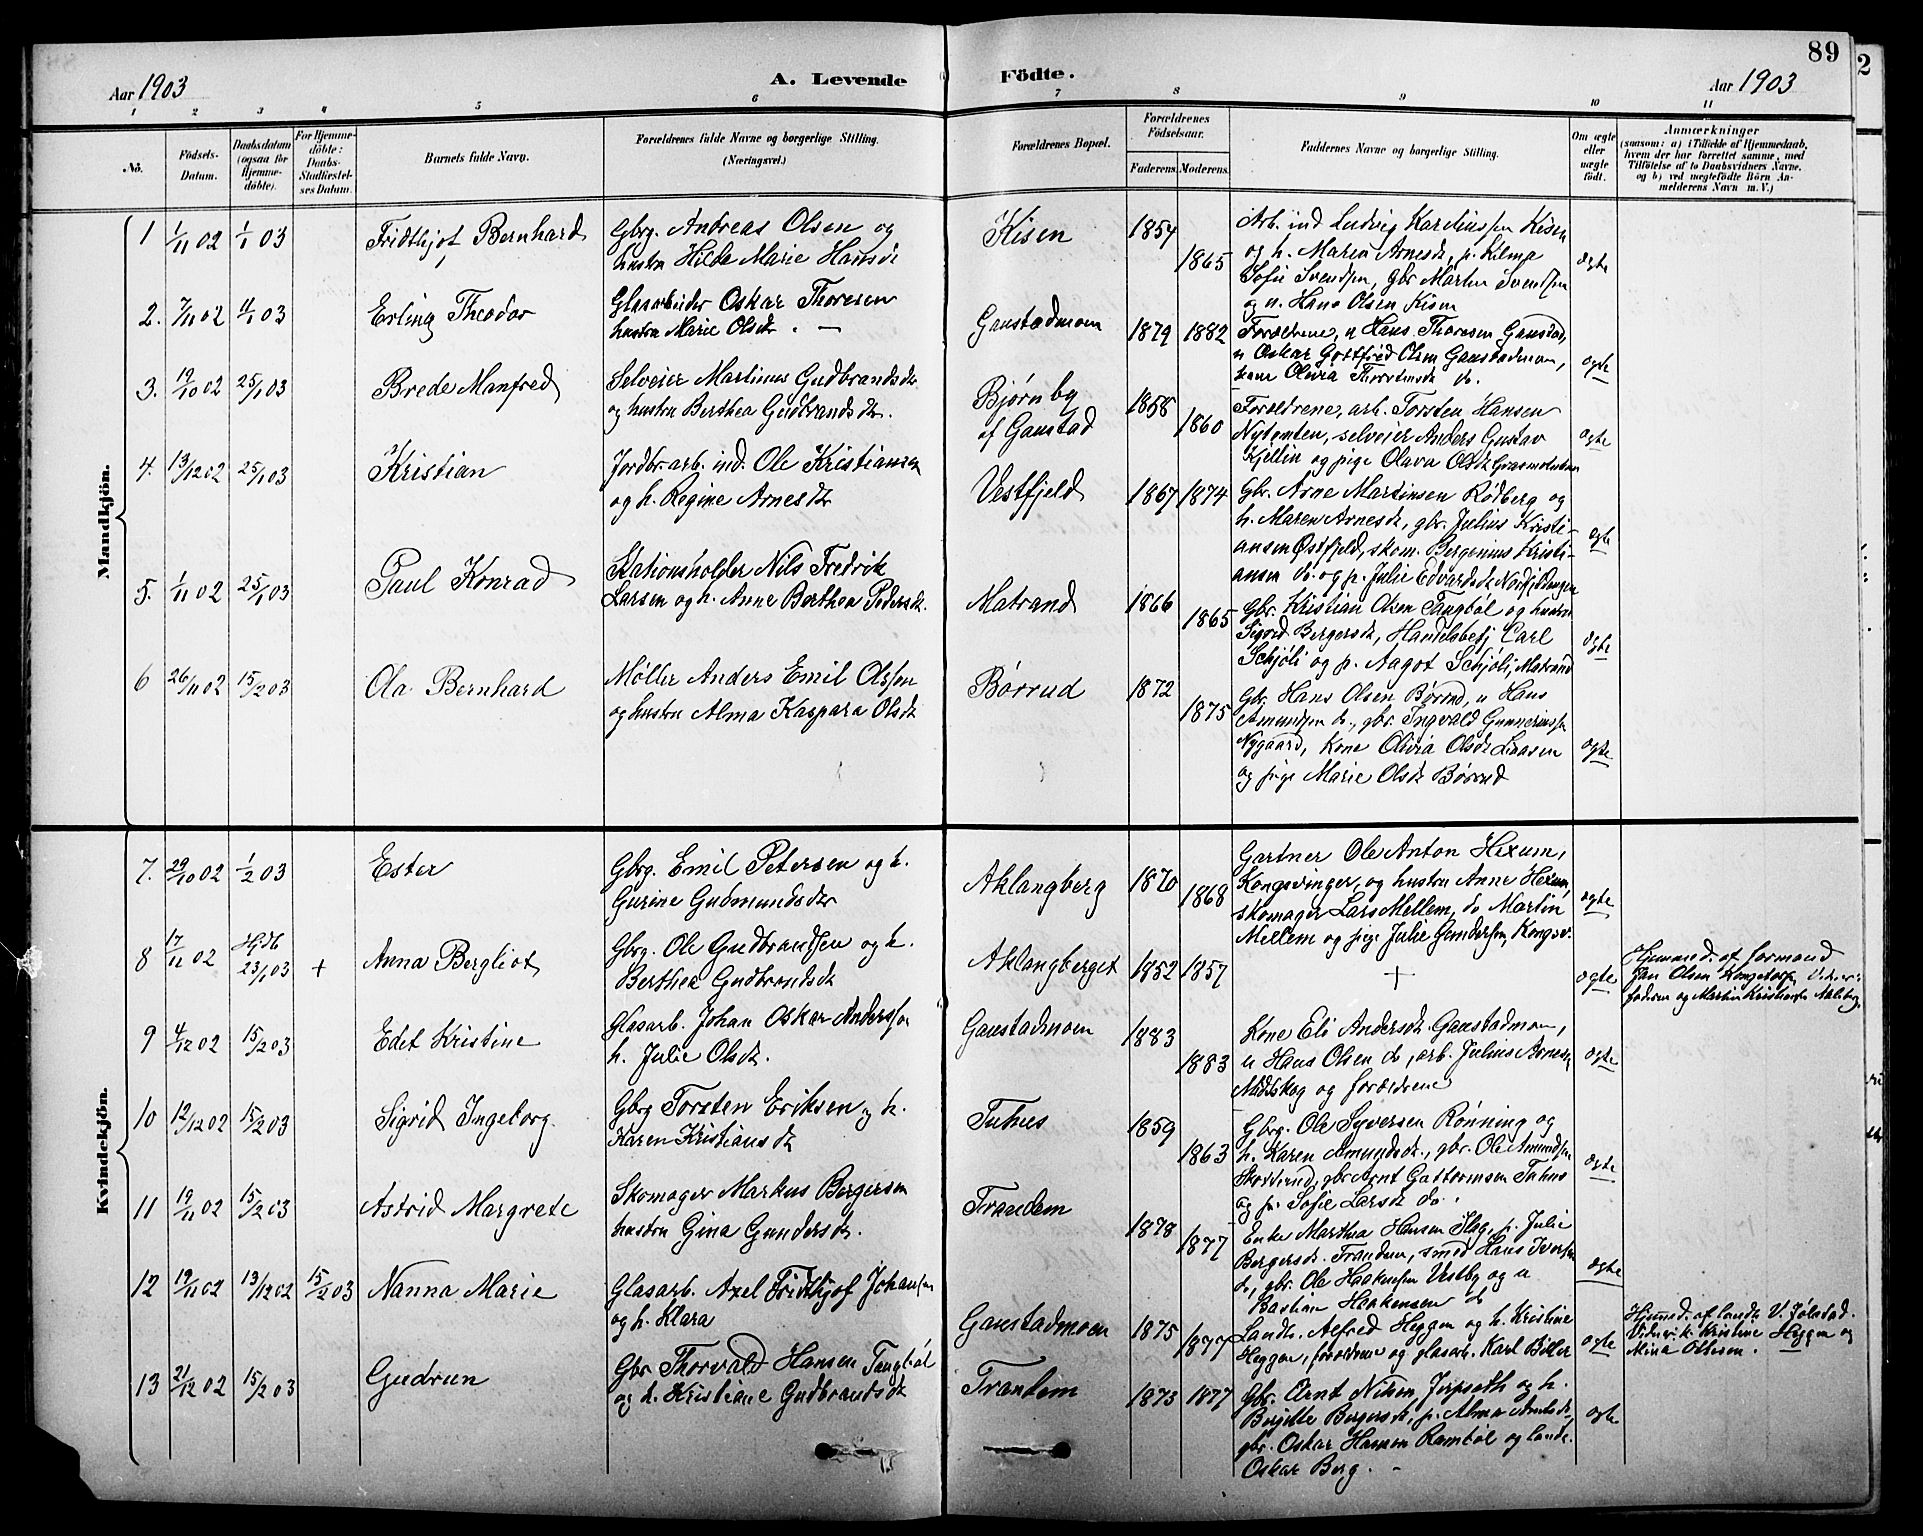 89
2
Aar 1903
A. Levende
Födte.
Aar 1903
1 2 3 4 5 6 7 8 9 10 11
No.
Födsels-
Datum.
Daabsdatum
(ogsaa for
Hjemme-
döbte).
For Hjemme-
döbte:
Daabs-
Stadfæstel-
ses Datum.
Barnets fulde Navn.
Forældrenes fulde Navne og borgerlige Stilling.
(Næringsvei.)
Forældrenes Bopæl.
Forældrenes
Födselsaar.
Faderens.
Moderens.
Faddernes Navne og borgerlige Stilling.
Om ægte
eller
uægte
født.
Anmærkninger
(saasom: a) i Tilfælde af Hjemmedaab,
hvem der har forrettet samme, med
Tilföielse af to Daabsvidners Navne,
og b) ved uægtefödte Börn An-
melderens Navn m. V.)
Mandkjön.
1 1/11 02 1/1 03
Fridthjof Bernhard
Gbrg. Andreas Olsen og
hustru Hilda Marie Hansd.
Kisen
1854
1865
Arb. ind Ludvig Kareliussen Kisen
og h. Maren Arnesd., p. Hilma
Sofie Svendsen, gbr Martin Svendsen
og u. Hans Olsen Kisen
ægte
2. 7/11 02 11/1 03
Erling Theodor
Glasarbeider Oskar Thoresen
hustru Marie Olsdr. —
Gaustadmoen
1879 1882
Forældrene, u Hans Thoresen Gaustad,
u Oskar Gottfred Olsen Gaustadmoen,
kone Olivia Thorstensdr do.
ægte
3. 19/10 02 25/1 03
Brede Manfred
Selveier Martinus Gudbrandsdr.
og hustru Berthea Gudbrandsdr.
Bjørnby
af Gaustad
1858
1860
Forældrene, arb. Torsten Hansen
Nytomten, selveier Anders Gustav
Kjellin og pige Olava Olsdr
ægte
4. 13/12 02 25/1 03
Kristian
Jordbr.arb. ind. Ole Kristiansen
og h. Regine Arnesdr
Vestfjeld
1867 1874
Gbr. Arne Martinsen Rødberg og
h. Maren Arnesdr, gbr. Julius Kristi-
ansen Østfjeld, skom. Bergenius Kristi-
ansen do. og p. Julie Edvardsdr
ægte
5. 1/11 02 25/1 03
Paul Konrad
Stationsholder Nils Fredrik
Larsen og h. Anne Berthea Pedersdr.
Matrand
1866
1865
Gbr. Kristian Olsen Tangbøl og hustru
Sigrid Bergersdr, Handelsbetj Carl
Schjöli og p. Aagot Schjöli, Matrand
ægte
6 26/11 02 15/2 03
Ola Bernhard
Møller Anders Emil Olssen
og hustru Alma Kaspara Olsdr
Børrud
1872
1875
Gbr. Hans Olsen Børrud, u Hans
Amundsen do., gbr. Ingvald Gunneriussen
Nygaard, kone Olivia Olsdr Liaasen
og pige Marie Olsdr Børrud
ægte
Kvindekjön.
7. 29/10 02 1/2 03
Ester
Gbrg. Emil Petersen og h.
Gurine Gudmundsdr
Aklangberg
1870
1868
Gartner Ole Anton Hexum,
Kongsvinger, og hustru Anne Hexum,
skomager Lars Mellem, do Martin
Mellem og pige Julie Gundersen, Kongsv.
ægte
8 17/11 02 Hjdb 23/1 03 +
Anna Bergliot
Gbrg. Ole Gudbrandsen og h.
Berthea Gudbrandsdr
Aklangberget
1852 1857
+
ægte
Hjemmed. af formand
Jan Olsen
faderen og Martin Kristiansen
9 4/12 02 15/2 03
Edet Kristine
Glasarb. Johan Oskar Anderssen
h. Julie Olsdr.
Gaustadmoen
1883
1883
Kone Eli Andersdr. Gaustadmoen,
u Hans Olsen do, arb. Julius Arnesen
Madskog og forældrene
ægte
10 12/12 02 15/2 03
Sigrid Ingeborg.
Gbrg Torsten Eriksen og h.
Karen Kristiansdr
Tuhus
1859
1863
Gbrg. Ole Syversen Rønning og
h. Karen Amundsdr., gbr. Ole Amundsen
Skotterud, gbr Arnt Guttormsen Tuhus
og p. Sofie Larsdr do.
ægte
11 19/11 02 15/2 03
Astrid Margrete
Skomager Markus Bergersen
hustru Gina Gundersdr.
Trandem
1878
1877
Enke Marthea Hansen Hag, p. Julie
Bergersdr. Trandem, smed Hans Iversen
do, gbr. Ole Haakensen Vestby og u
Bastian Haakensen do
ægte
12 19/11 02 13/12 02 15/2 03
Nanna Marie
Glasarb. Axel Fridthjof Johansen
og h. Klara
Gaustadmoen
1875
1877
Landh. Alfred Heggen og h. Kristine
Heggen, forældrene og glasarb. Karl Bitter
ægte
Hjemmed. af landh. V. Jølstad.
Vidner: k. Kristine Heggen og
Mina Ottesen.
13 21/12 02 15/2 03
Gudrun
Gbr Thorvald Hansen Tangbøl
og h. Kristiane Gudbrandsdr
Trandem
1873 1877
Gbr. Arnt Nilsen Jerpseth og h.
Birgitte Bergersdr, p. Alma Arntsdr,
gbr. Oskar Hansen Rambøl og landh.
Oskar Berg. —
ægte